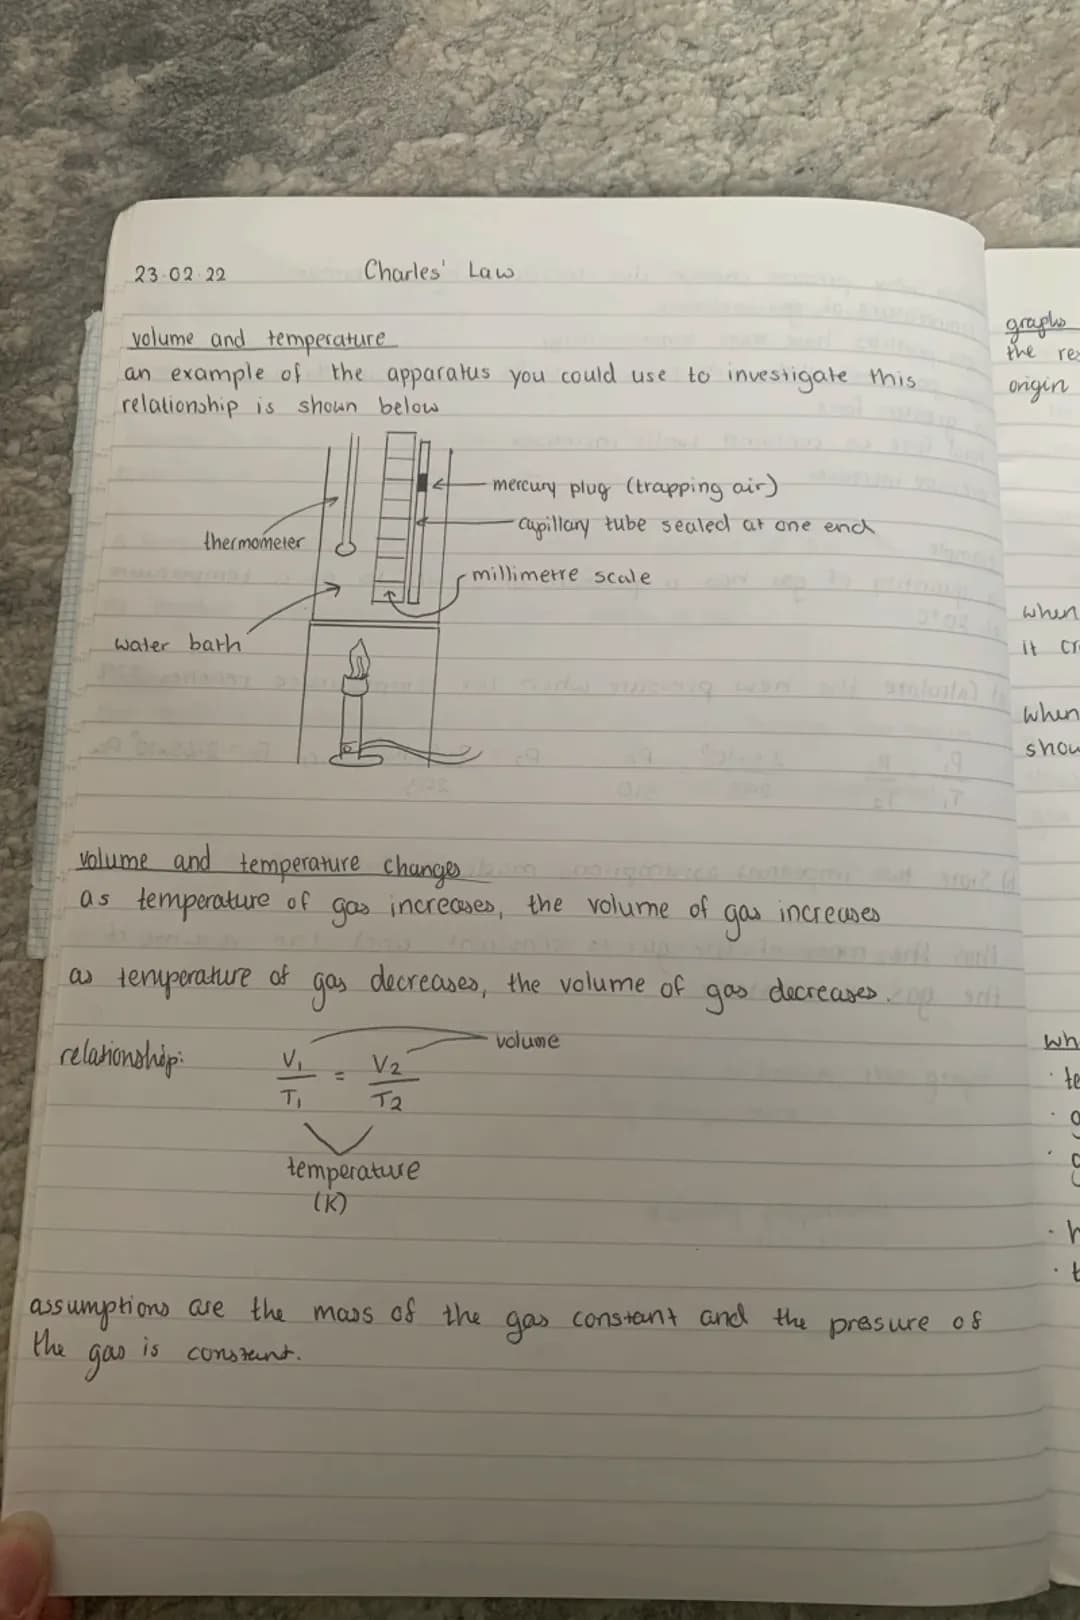 23.02.22
Charles' Law
volume and temperature
an example of the apparatus you could use to investigate this
relationship is shown below
mercury plug (trapping air)
capillary tube sealed at one end
thermometer
millimetre scale
water bath
volume and temperature changes
as temperature of gas increases, the volume of gas increases
as temperature of gas decreases, the volume of gas decreases.
relationship:
V₁/T₁ = V₂/T₂
volume
temperature
(K)
assumptions are the mass of the gas constant and the presure of
the gas is constant.
graphs
the
origin
when
it
when